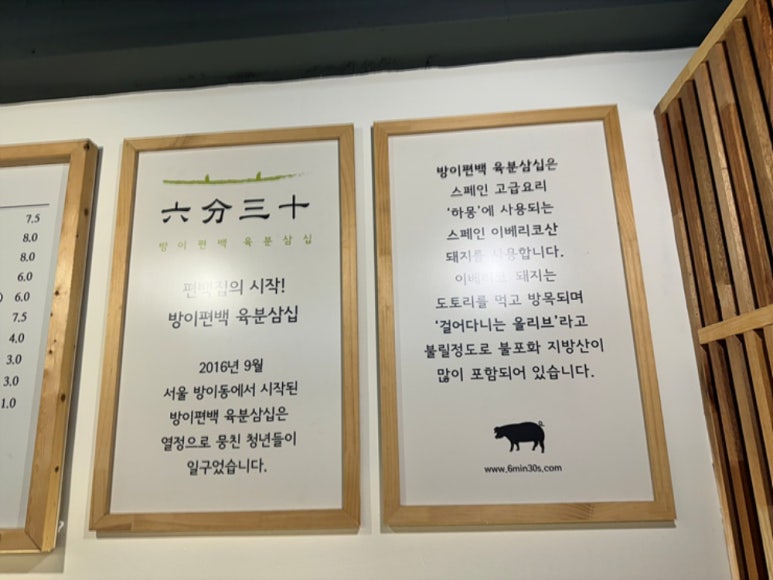 7.5
8.0
8.0
6.0
) 6.0
7.5
4.0
3.0
3.0
1.0
六分三十
방이편백 육분삼십
편백집의 시작!
방이편백 육분삼십
2016년 9월
서울 방이동에서 시작된
방이편백 육분삼십은
열정으로 뭉친 청년들이
일구었습니다.
방이편백 육분삼십은
스페인 고급요리
‘하몽’에 사용되는
스페인 이베리코산
돼지를 사용합니다.
이베리코 돼지는
도토리를 먹고 방목되며
‘걸어다니는 올리브’라고
불릴정도로 불포화 지방산이
많이 포함되어 있습니다.
www.6min30s.com